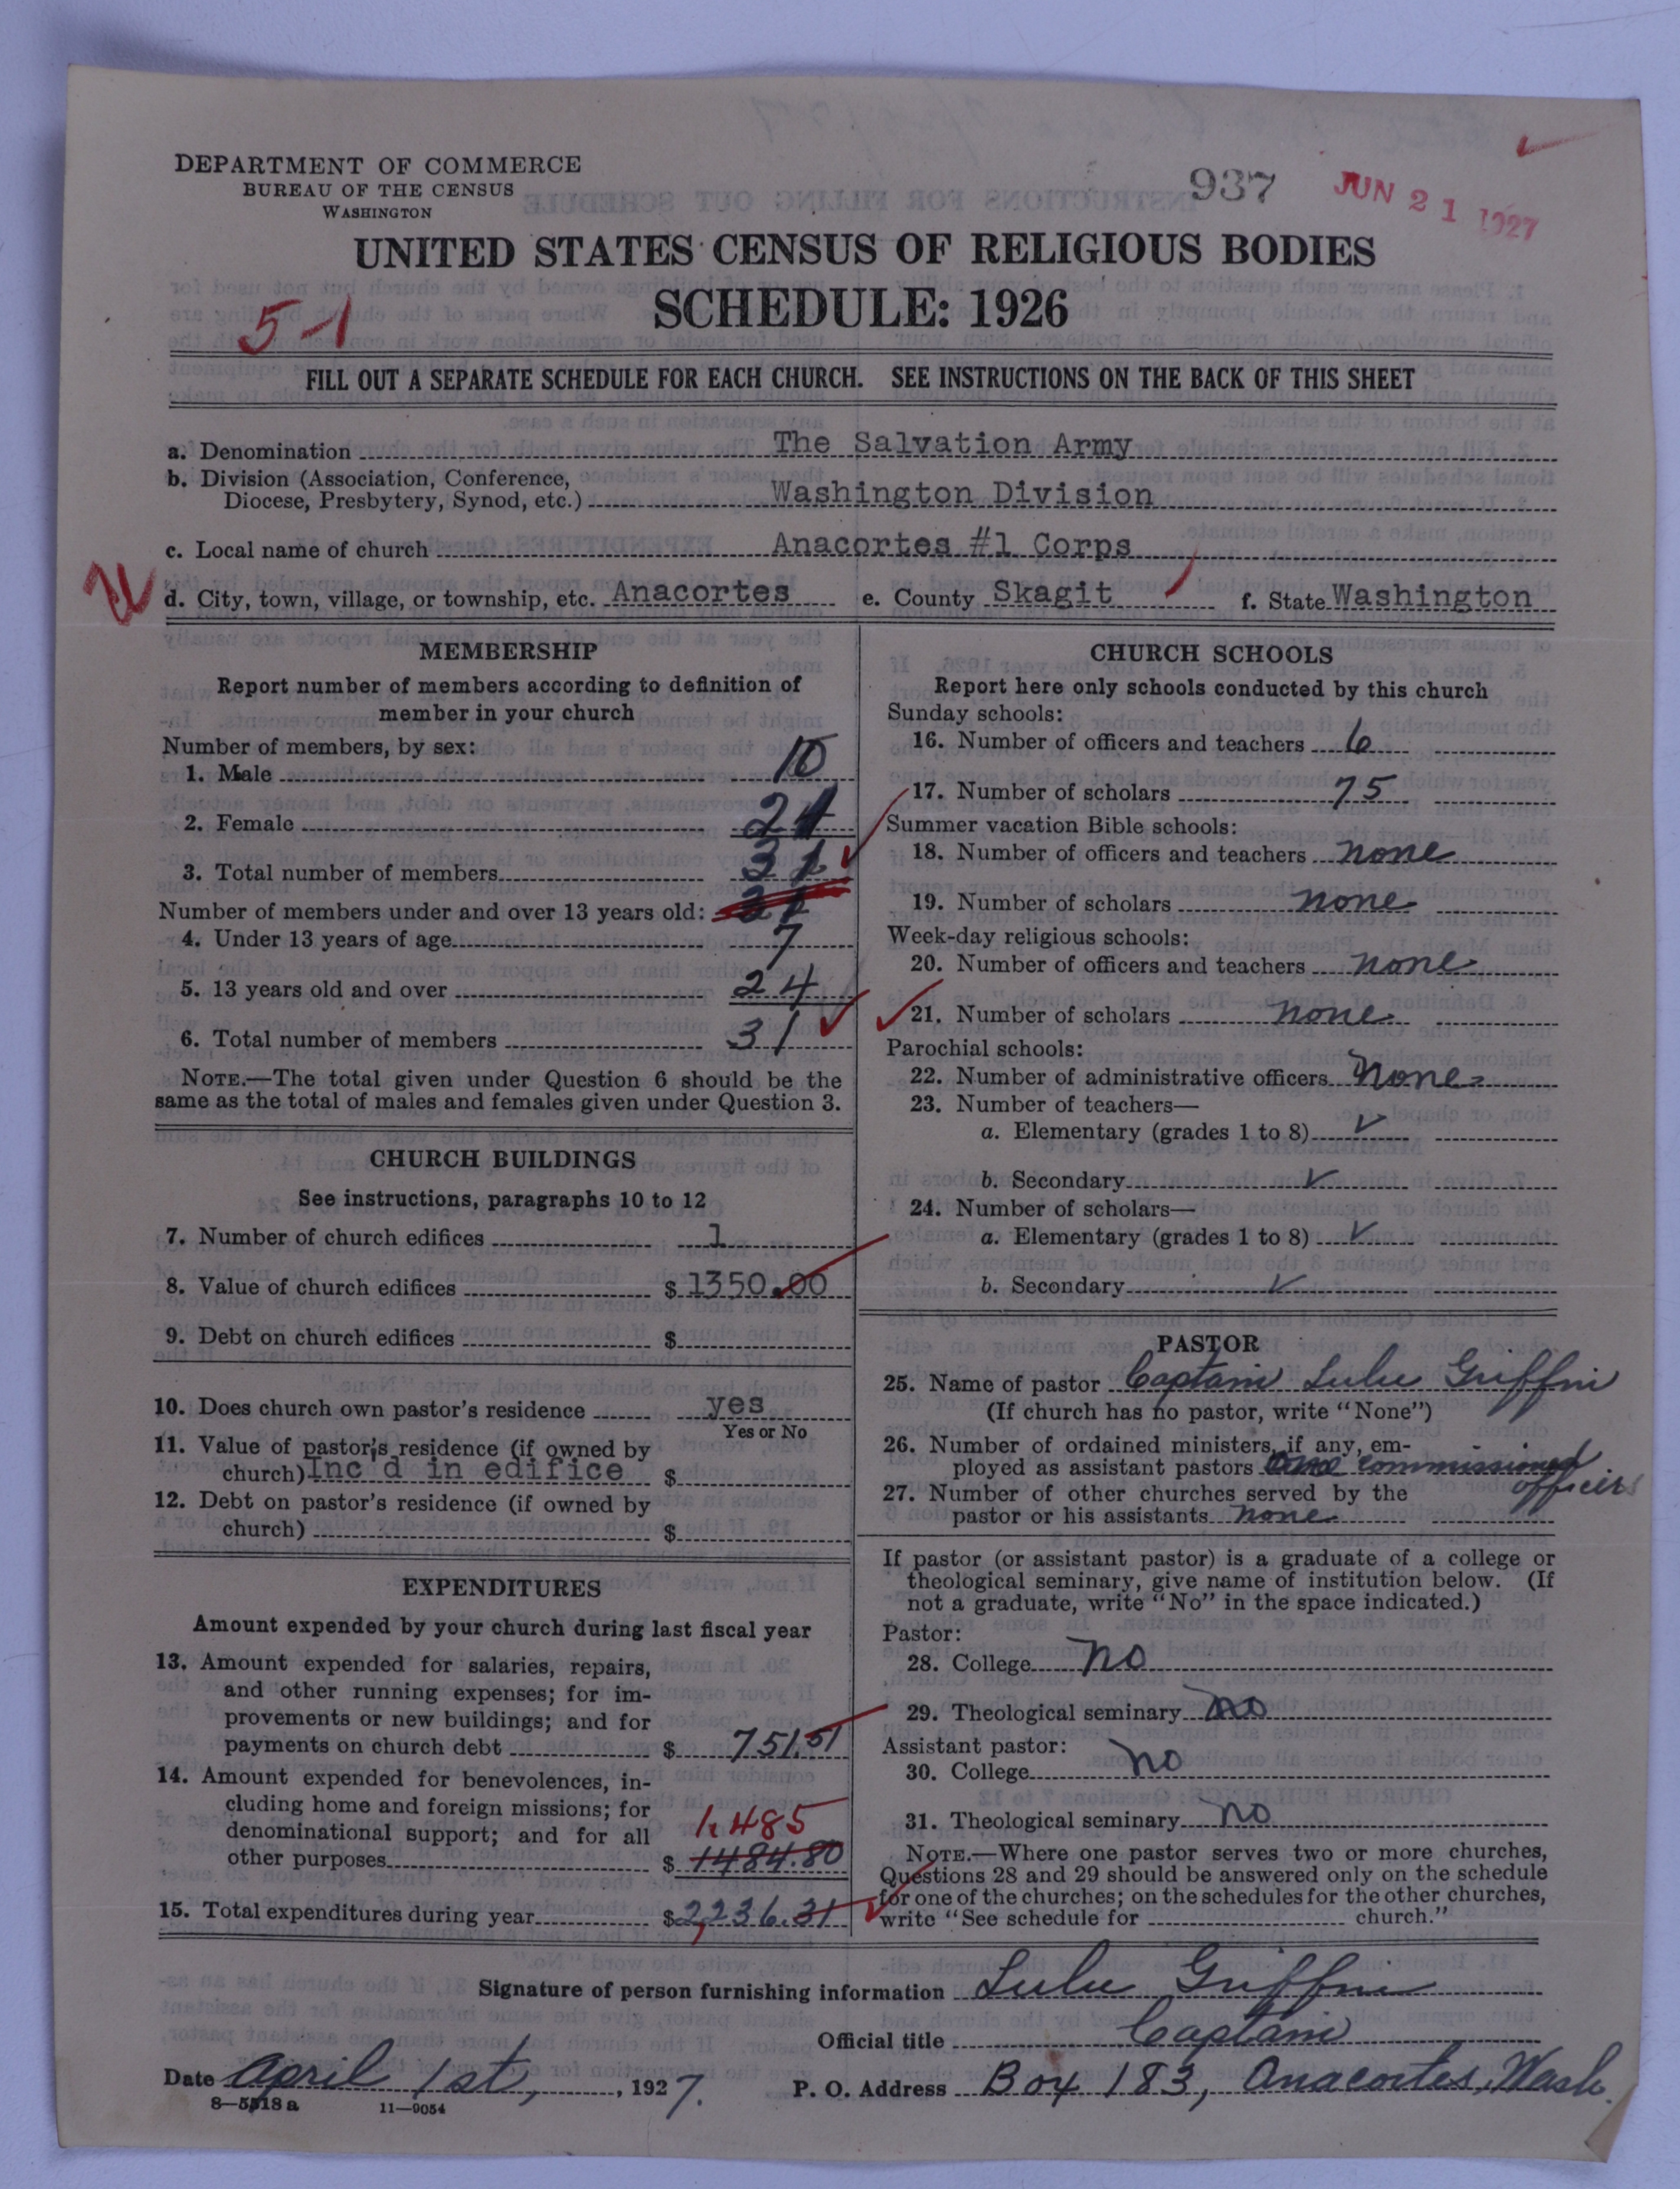 DEPARTMENT OF COMMERCE
BUREAU OF THE CENSUS
WASHINGTON
937
JUN 21 1927
UNITED STATES CENSUS OF RELIGIOUS BODIES
SCHEDULE: 1926
5-1
FILL OUT A SEPARATE SCHEDULE FOR EACH CHURCH. SEE INSTRUCTIONS ON THE BACK OF THIS SHEET
a. Denomination The Salvation Army
b. Division (Association, Conference,
Diocese, Presbytery, Synod, etc.) Washington Division
c. Local name of church Anacortes #1 Corps
d. City, town, village, or township, etc. Anacortes e. County Skagit f. State Washington
MEMBERSHIP
Report number of members according to definition of
member in your church
Number of members, by sex:
1. Male 10
2. Female 21
3. Total number of members 31
Number of members under and over 13 years old:
4. Under 13 years of age 7
5. 13 years old and over 24
6. Total number of members 31
NOTE.—The total given under Question 6 should be the
same as the total of males and females given under Question 3.
CHURCH BUILDINGS
See instructions, paragraphs 10 to 12
7. Number of church edifices 1
8. Value of church edifices $ 1350.00
9. Debt on church edifices $
10. Does church own pastor's residence yes
Yes or No
11. Value of pastor's residence (if owned by
church) Inc'd in edifice $
12. Debt on pastor's residence (if owned by
church) $
EXPENDITURES
Amount expended by your church during last fiscal year
13. Amount expended for salaries, repairs,
and other running expenses; for im-
provements or new buildings; and for
payments on church debt $ 751.51
14. Amount expended for benevolences, in-
cluding home and foreign missions; for
denominational support; and for all 1,485
other purposes $ 1484.80
15. Total expenditures during year $2,236.31
CHURCH SCHOOLS
Report here only schools conducted by this church
Sunday schools:
16. Number of officers and teachers 6
17. Number of scholars 75
Summer vacation Bible schools:
18. Number of officers and teachers none
19. Number of scholars none
Week-day religious schools:
20. Number of officers and teachers none
21. Number of scholars none
Parochial schools:
22. Number of administrative officers none
23. Number of teachers—
a. Elementary (grades 1 to 8) ✓
b. Secondary ✓
24. Number of scholars—
a. Elementary (grades 1 to 8) ✓
b. Secondary ✓
PASTOR
25. Name of pastor Captain Lulu Griffin
(If church has no pastor, write "None")
26. Number of ordained ministers, if any, em-
ployed as assistant pastors commissioned
officers
27. Number of other churches served by the
pastor or his assistants none
If pastor (or assistant pastor) is a graduate of a college or
theological seminary, give name of institution below. (If
not a graduate, write "No" in the space indicated.)
Pastor:
28. College no
29. Theological seminary no
Assistant pastor:
30. College no
31. Theological seminary no
NOTE.—Where one pastor serves two or more churches,
Questions 28 and 29 should be answered only on the schedule
for one of the churches; on the schedules for the other churches,
write "See schedule for church."
Signature of person furnishing information Lulu Griffin
Official title Captain
Date April 1st, , 1927. P. O. Address Box 183, Anacortes, Wash.
8—5518 a 11—9054